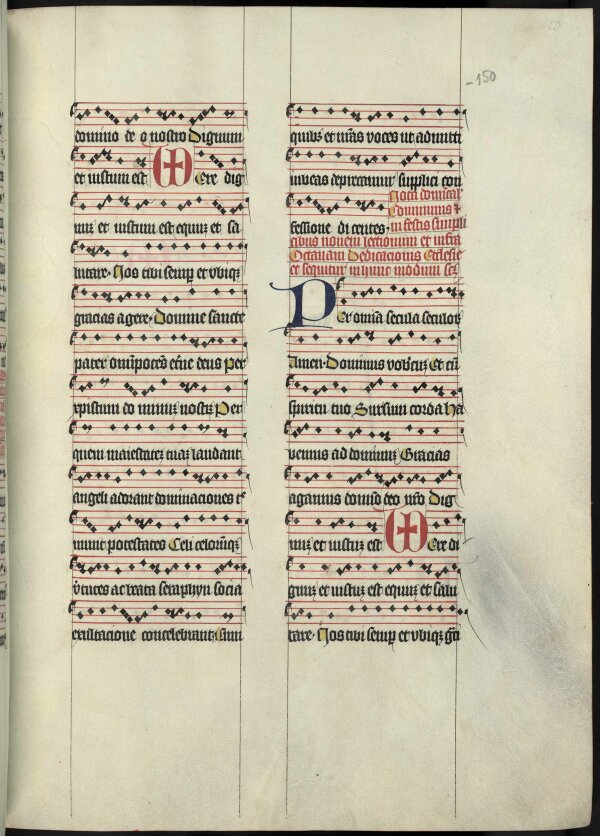 -150
domino de o nostro Dignum
et iustum est Vere dig
nuz et iustum est equuz et sa
lutare. Nos tibi semp et vbiqz
gracias agere. Domine sancte
pater omipotēs etne deus Per
xpistum do minuz nostrz Per
quem maiestatez tuaz laudant
angeli adorant dominaciones t
munt potestates Celi celorūqz
v̄tutes ac beata seraphyn socia
exultacione concelebrant. Cum
quibz et nr̄as voces ut admitti
iubeas deprecamur supplici con
fessione di centes.
in festis simpli
cibus novem lectionum et infra
Octavam Dedicacionis Ecclesie
et sequitur in hunc modum
Per omnia secula seculor
Amen. Dominus vobiscuz Et cū
spiritu tuo Sursum corda Ha
bemus ad dominuz Gracias
agamus domīo deo nr̄o Dig
nuz et iustuz est Vere di
gnuz et iustuz est equuz et salu
tare. Nos tibi semp et vbiqz gr̄a